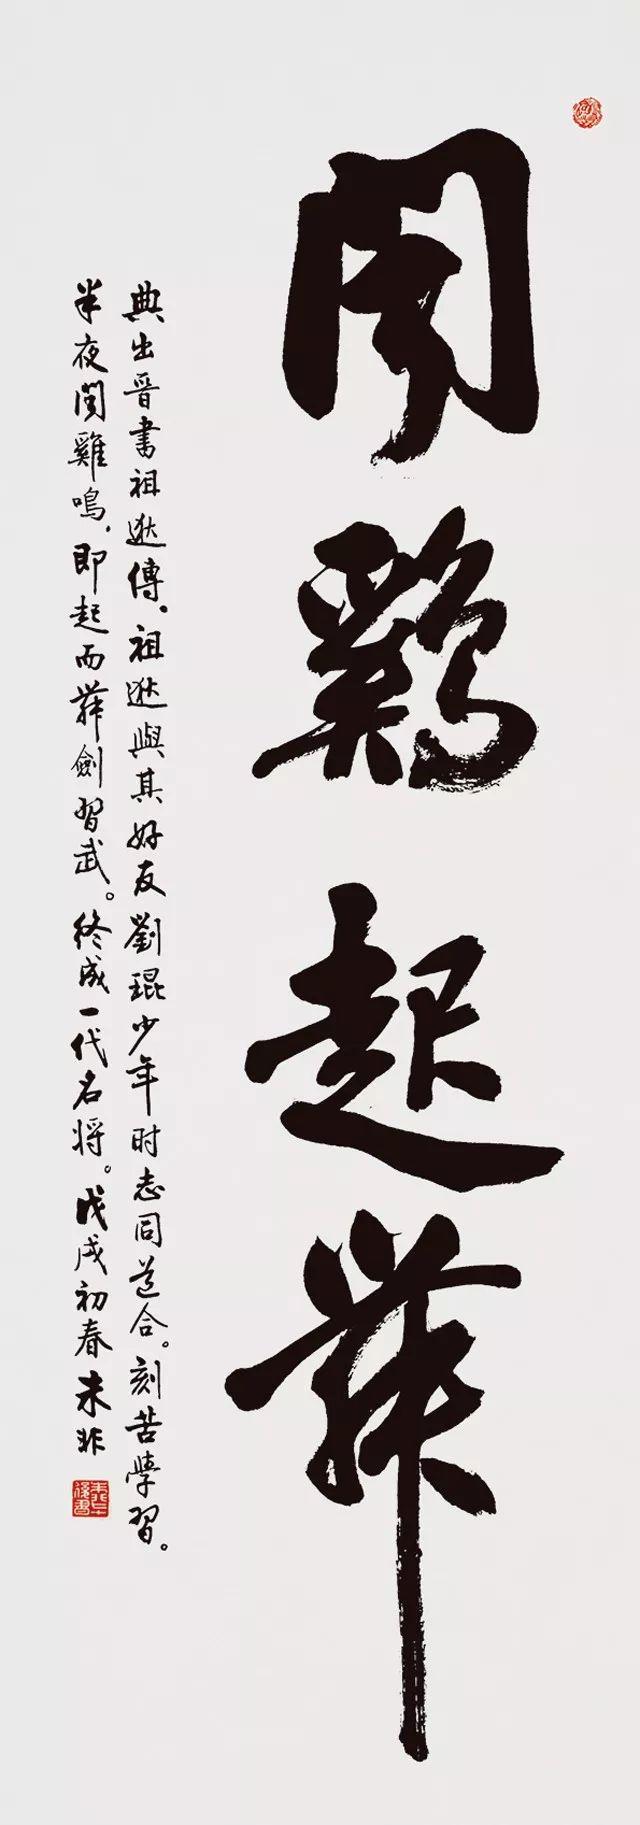 闻鷄起舞
典出晋書祖逖傳、祖逖與其好友劉琨少年时志同道合。刻苦學習。
半夜聞雞鳴，即起而舞劍習武。终成一代名将。戊戌初春未非